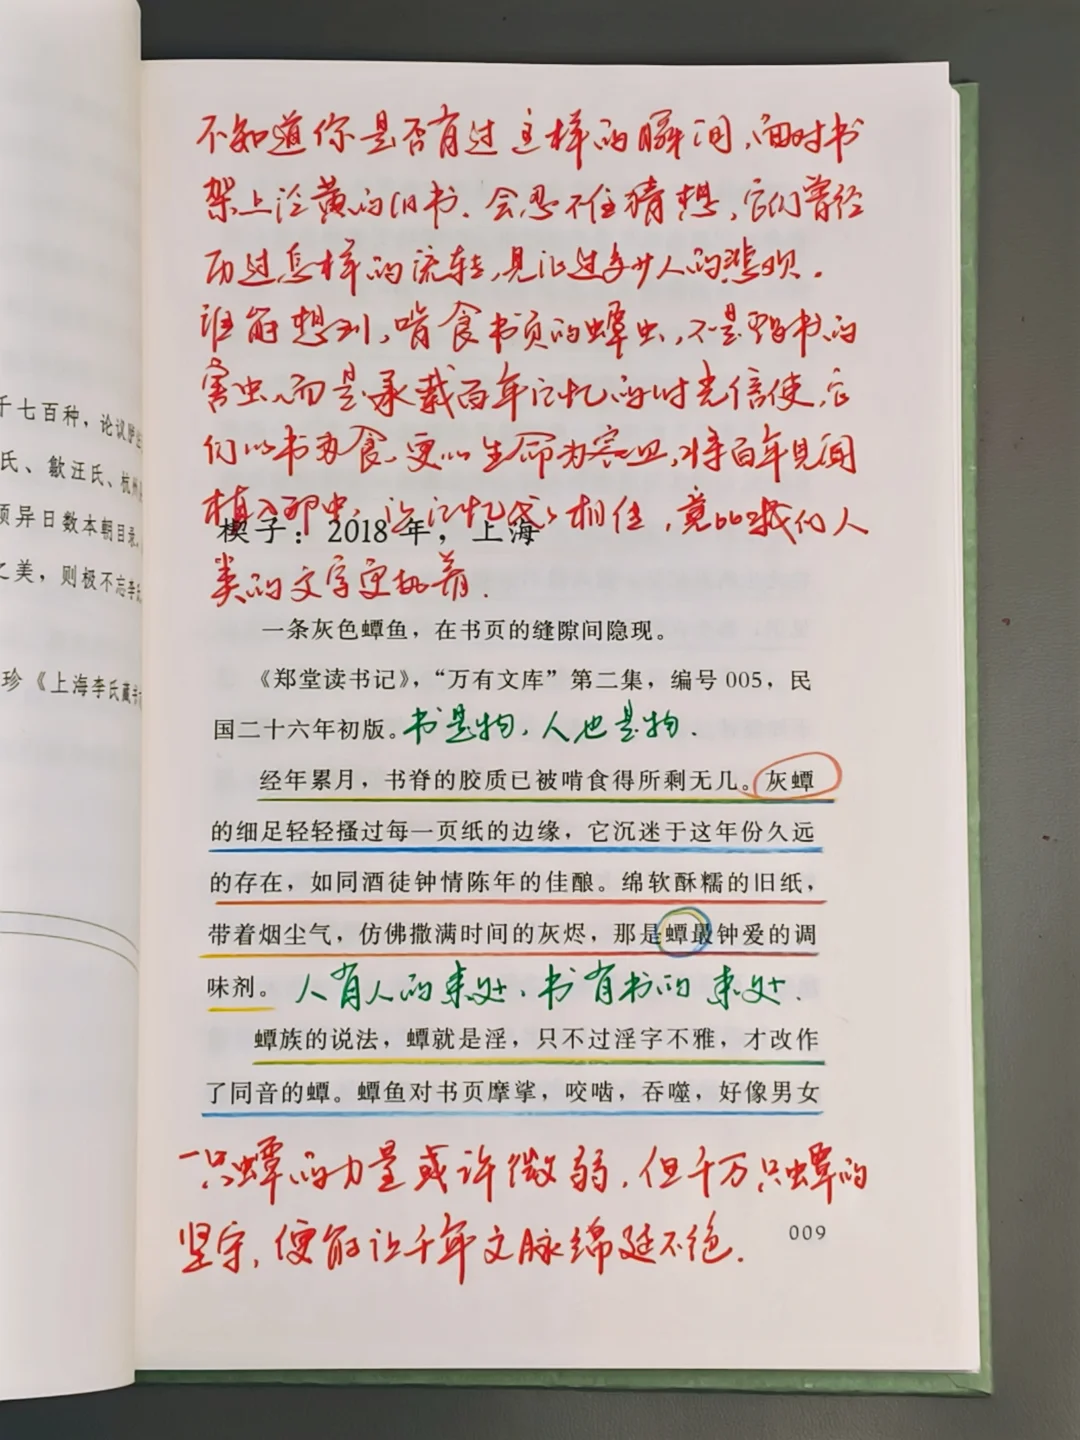 不知道你是否有过这样的瞬间,面对书
架上泛黄的旧书.会忍不住猜想,它们曾经
历过怎样的流转,见证过多少人的悲欢.
谁能想到,啃食书页的蟫虫,不是毁书的
害虫,而是承载百年记忆的时光信使,它
们以书为食,更以生命为容皿,将百年见闻
植入卵中,让记忆代代相传,竟比我们人
楔子：2018年，上海
类的文字更执着.
一条灰色蟫鱼，在书页的缝隙间隐现。
《郑堂读书记》，“万有文库”第二集，编号005，民
国二十六年初版。书是物,人也是物.
经年累月，书脊的胶质已被啃食得所剩无几。灰蟫
的细足轻轻搔过每一页纸的边缘，它沉迷于这年份久远
的存在，如同酒徒钟情陈年的佳酿。绵软酥糯的旧纸，
带着烟尘气，仿佛撒满时间的灰烬，那是蟫最钟爱的调
味剂。人有人的来处,书有书的来处.
蟫族的说法，蟫就是淫，只不过淫字不雅，才改作
了同音的蟫。蟫鱼对书页摩挲，咬啮，吞噬，好像男女
一只蟫的力量或许微弱,但千万只蟫的
坚守,便能让千年文脉绵延不绝.
009
千七百种，论议胪
氏、歙汪氏、杭州
项异日数本朝目录
之美，则极不忘李氏
珍《上海李氏藏书